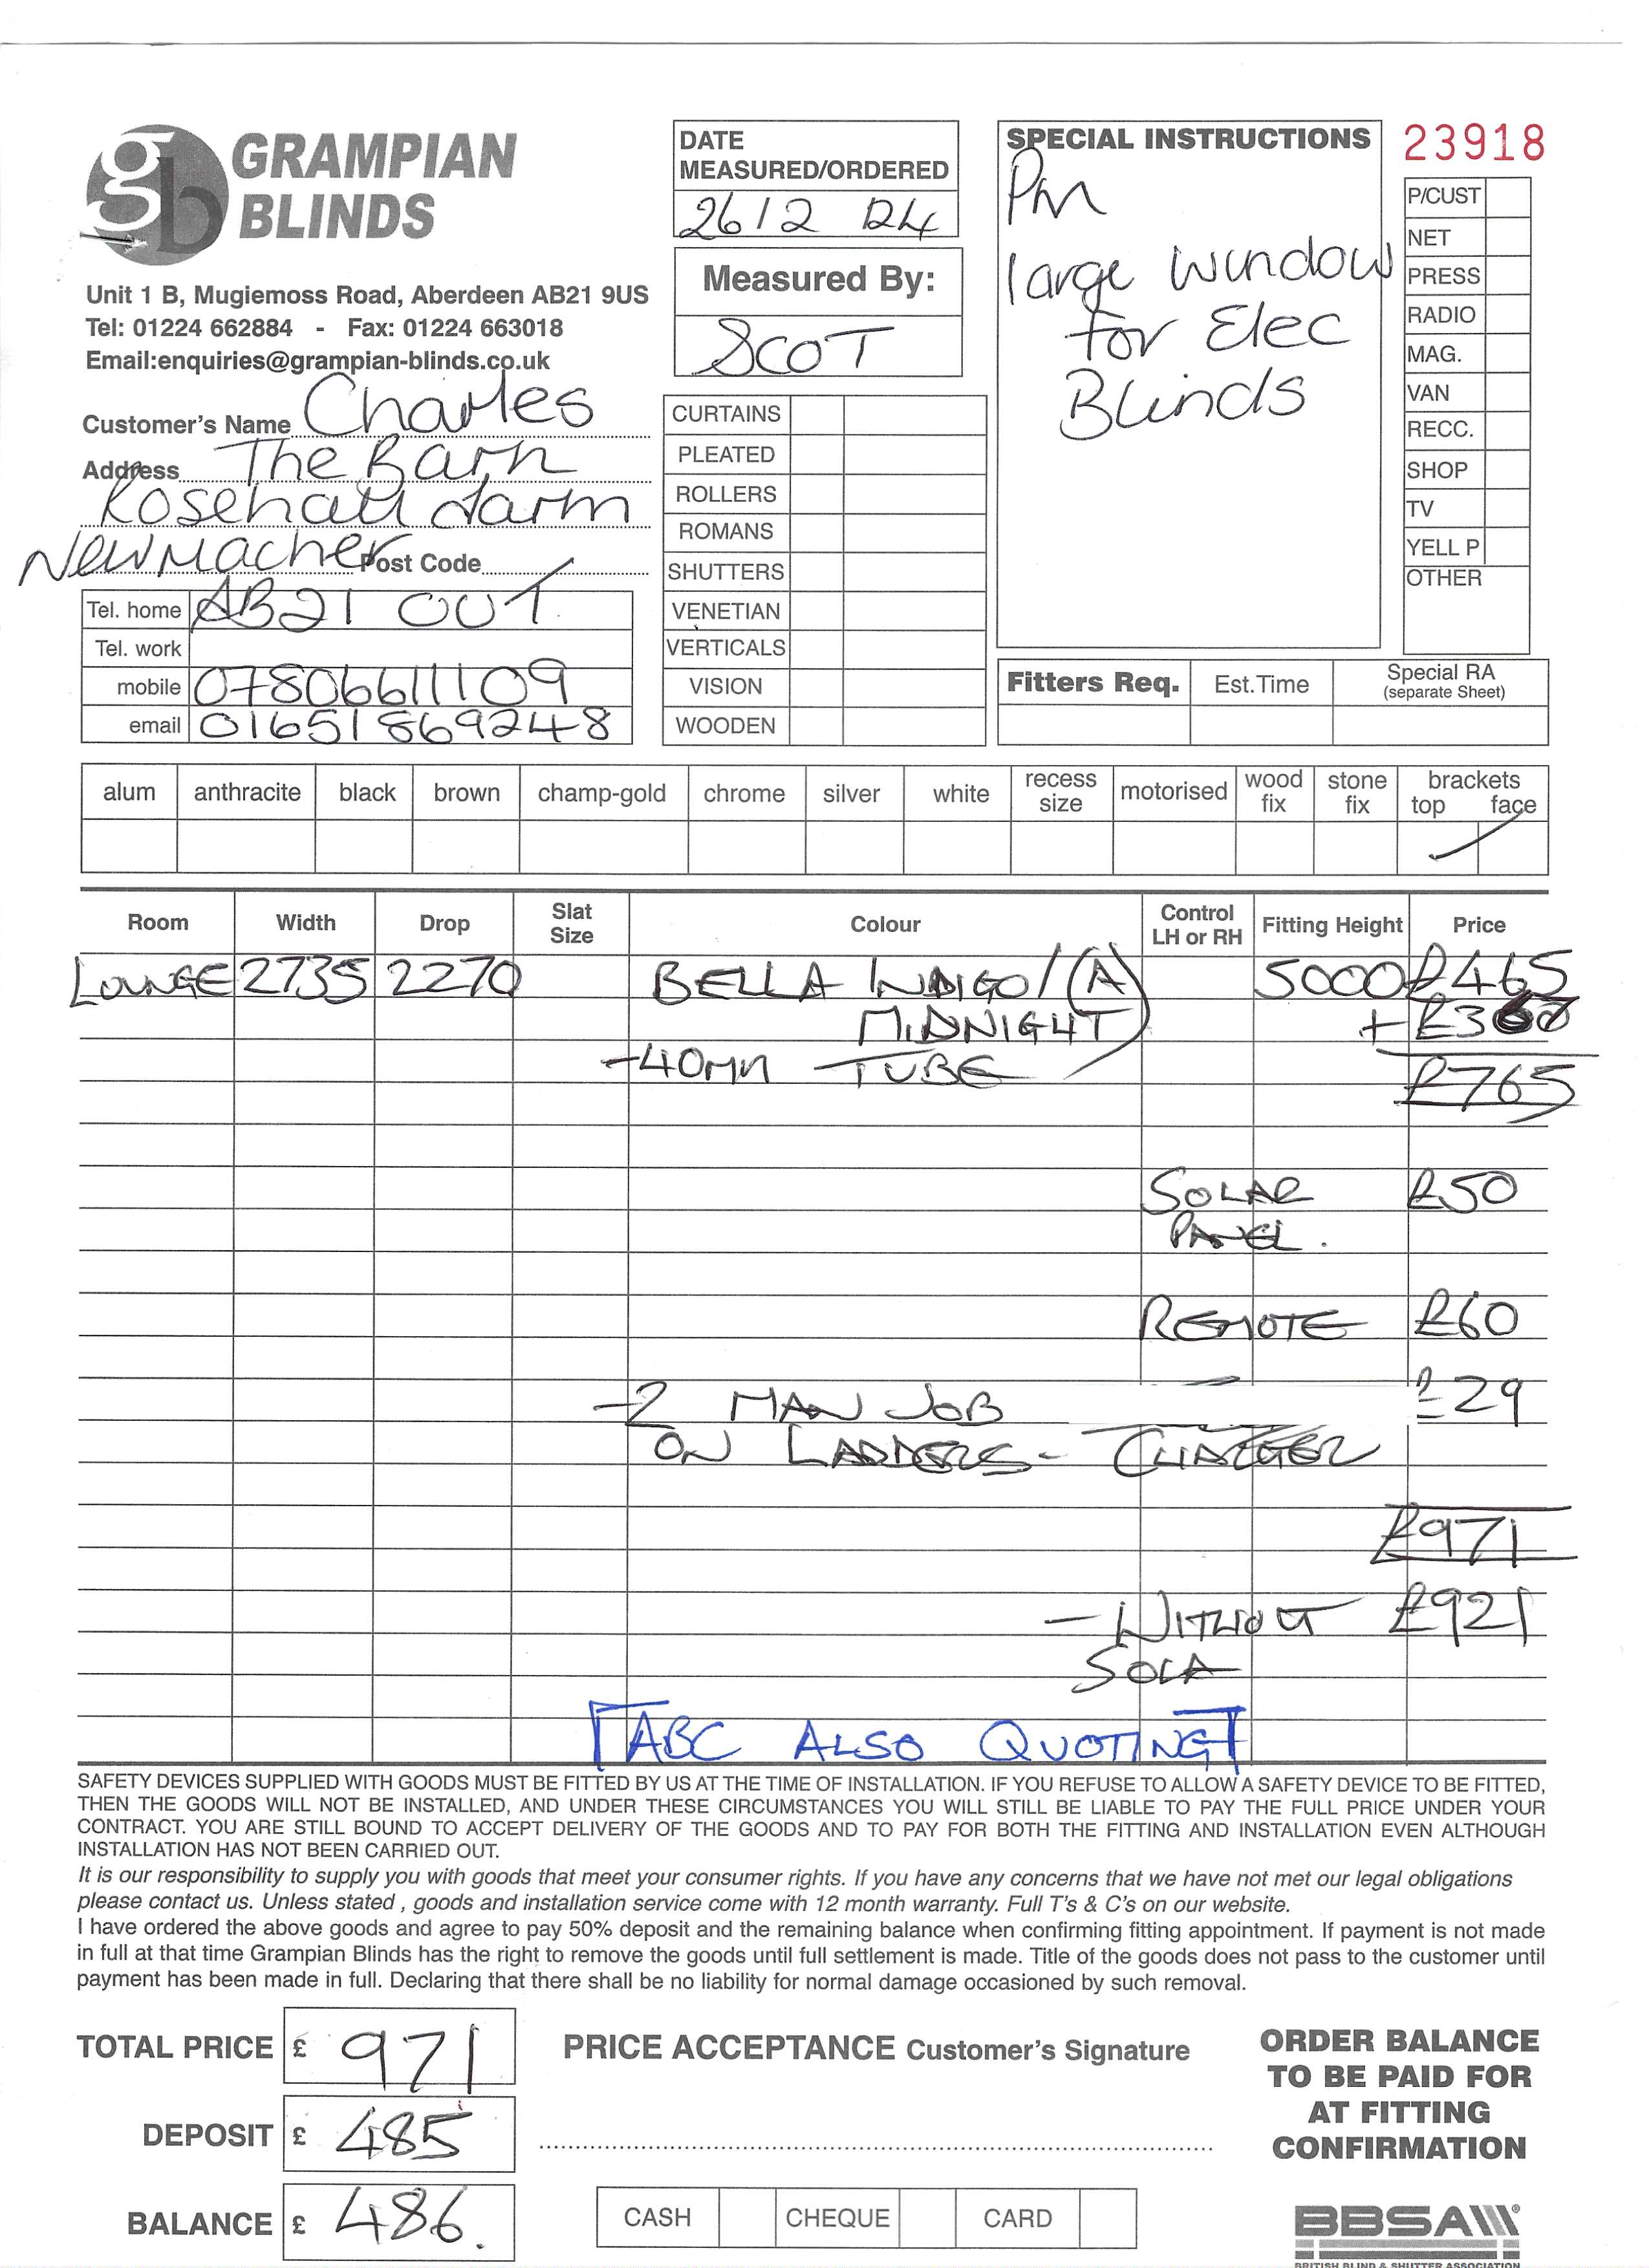 gb GRAMPIAN
BLINDS
Unit 1 B, Mugiemoss Road, Aberdeen AB21 9US
Tel: 01224 662884 - Fax: 01224 663018
Email:enquiries@grampian-blinds.co.uk
Customer's Name Charles
Address The Barn
Rosehall farm
Newmacher Post Code
Tel. home AB21 OUT
Tel. work
mobile 07806611109
email 01651869248
DATE
MEASURED/ORDERED
26/2
Measured By:
SCOT
CURTAINS
PLEATED
ROLLERS
ROMANS
SHUTTERS
VENETIAN
VERTICALS
VISION
WOODEN
SPECIAL INSTRUCTIONS
Pm
large window
for Elec
Blinds
23918
P/CUST
NET
PRESS
RADIO
MAG.
VAN
RECC.
SHOP
TV
YELL P
OTHER
Fitters Req. Est.Time Special RA
(separate Sheet)
alum anthracite black brown champ-gold chrome silver white recess size motorised wood fix stone fix brackets top face
Room Width Drop Slat Size Colour Control LH or RH Fitting Height Price
LOUNGE 2735 2270 BELLA INDIGO/ (A) 5000 £465
MIDNIGHT + £300
-40mm TUBE £765
SOLAR £50
PANEL.
REMOTE £60
-2 MAN JOB 29
ON LADDERS - CHARGER
£971
- WITHOUT £921
SOLA
[ABC ALSO QUOTING]
SAFETY DEVICES SUPPLIED WITH GOODS MUST BE FITTED BY US AT THE TIME OF INSTALLATION. IF YOU REFUSE TO ALLOW A SAFETY DEVICE TO BE FITTED,
THEN THE GOODS WILL NOT BE INSTALLED, AND UNDER THESE CIRCUMSTANCES YOU WILL STILL BE LIABLE TO PAY THE FULL PRICE UNDER YOUR
CONTRACT. YOU ARE STILL BOUND TO ACCEPT DELIVERY OF THE GOODS AND TO PAY FOR BOTH THE FITTING AND INSTALLATION EVEN ALTHOUGH
INSTALLATION HAS NOT BEEN CARRIED OUT.
It is our responsibility to supply you with goods that meet your consumer rights. If you have any concerns that we have not met our legal obligations
please contact us. Unless stated , goods and installation service come with 12 month warranty. Full T's & C's on our website.
I have ordered the above goods and agree to pay 50% deposit and the remaining balance when confirming fitting appointment. If payment is not made
in full at that time Grampian Blinds has the right to remove the goods until full settlement is made. Title of the goods does not pass to the customer until
payment has been made in full. Declaring that there shall be no liability for normal damage occasioned by such removal.
TOTAL PRICE £ 971
DEPOSIT £ 485
BALANCE £ 486.
PRICE ACCEPTANCE Customer's Signature
CASH CHEQUE CARD
ORDER BALANCE
TO BE PAID FOR
AT FITTING
CONFIRMATION
BBSA ®
BRITISH BLIND & SHUTTER ASSOCIATION